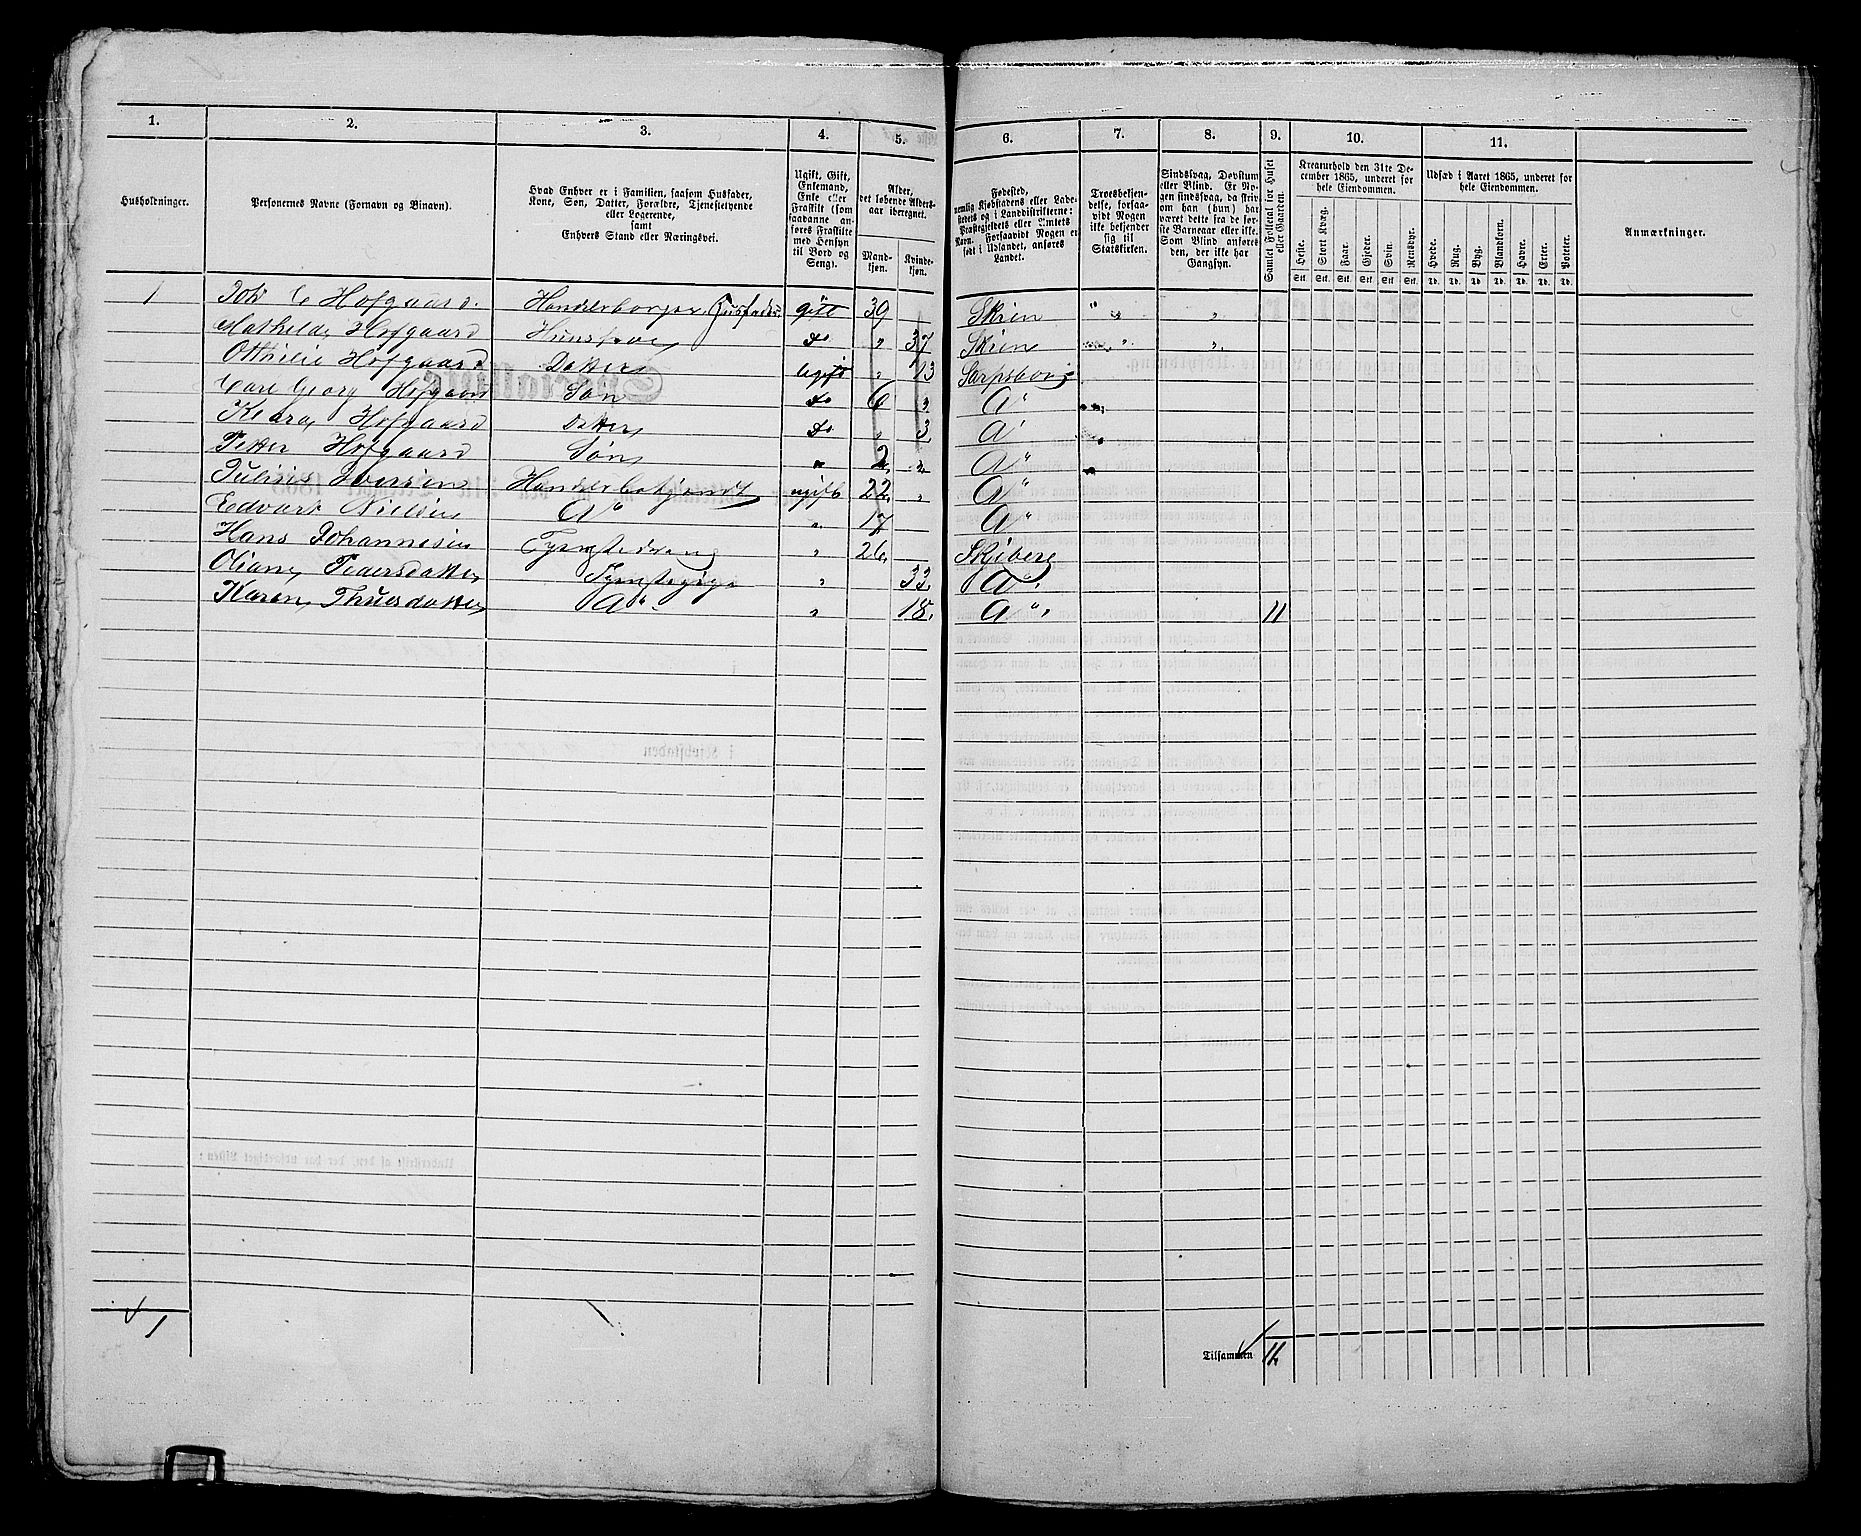 1. 2. 3. 4. 5. 6. 7. 8. 9. 10. 11.
Husholdninger.
Personernes Navne (Fornavn og Binavn).
Hvad Enhver er i Familien, saasom Husfader, Kone, Søn, Datter, Forældre, Tjenestetyende eller Logerende, samt Enhvers Stand eller Næringsvei.
Ugift, Gift, Enkemand, Enke eller Fraskilt (som saadanne anføres Fraskilte med Hensyn til Bord og Seng).
Alder, det løbende Alders-aar iberegnet.
Mand-kjøn. Kvinde-kjøn.
Fødested, nemlig Kjøbstadens eller Ladestedets og i Landdistrikterne: Præstegjeldets eller Amtets Navn. Forsaavidt Nogen er født i Udlandet, anføres Landet.
Troesbekjendelse, forsaavidt Nogen ikke bekjender sig til Statskirken.
Sindssvag, Døvstum eller Blind. Er Nogen sindssvag, da skrives om han (hun) har været dette fra de første Barneaar eller ikke. Som Blind anføres den, der ikke har Gangsyn.
Samlet Folketal for Huset eller Gaarden.
Kreaturhold den 31te December 1865, underet for hele Eiendommen.
Heste. Stort Kvæg. Faar. Gjeder. Svin. Rensdyr.
Stk. Stk. Stk. Stk. Stk. Stk.
Udsæd i Aaret 1865, underet for hele Eiendommen.
Hvede. Rug. Byg. Blandkorn. Havre. Erter. Poteter.
Td. Td. Td. Td. Td. Td. Td.
Anmærkninger.
1 Joh C Hofgaard. Handelsborger, Husfader gift 39 Skien " " "
Mathilde Hofgaard Huustrue do " 37 Skien " "
Otthilie Hofgaard Datter ugift " 13 Sarpsborg
Carl Georg Hofgaard Søn do 6 " d"
Hofgaard Datter do " 3 d"
Petter Hofgaard Søn " 2 " d"
Julius Iversen Handelsbetjendt ugift 22 " d"
Edvart Nielsen d" " 17 d"
Hans Johannesen " 26 Skjeberg
Oliane Pedersdatter Tjenstepige " 33 d"
Karen Thuesdatter d" " 18 d" 11
1
Tilsammen 11